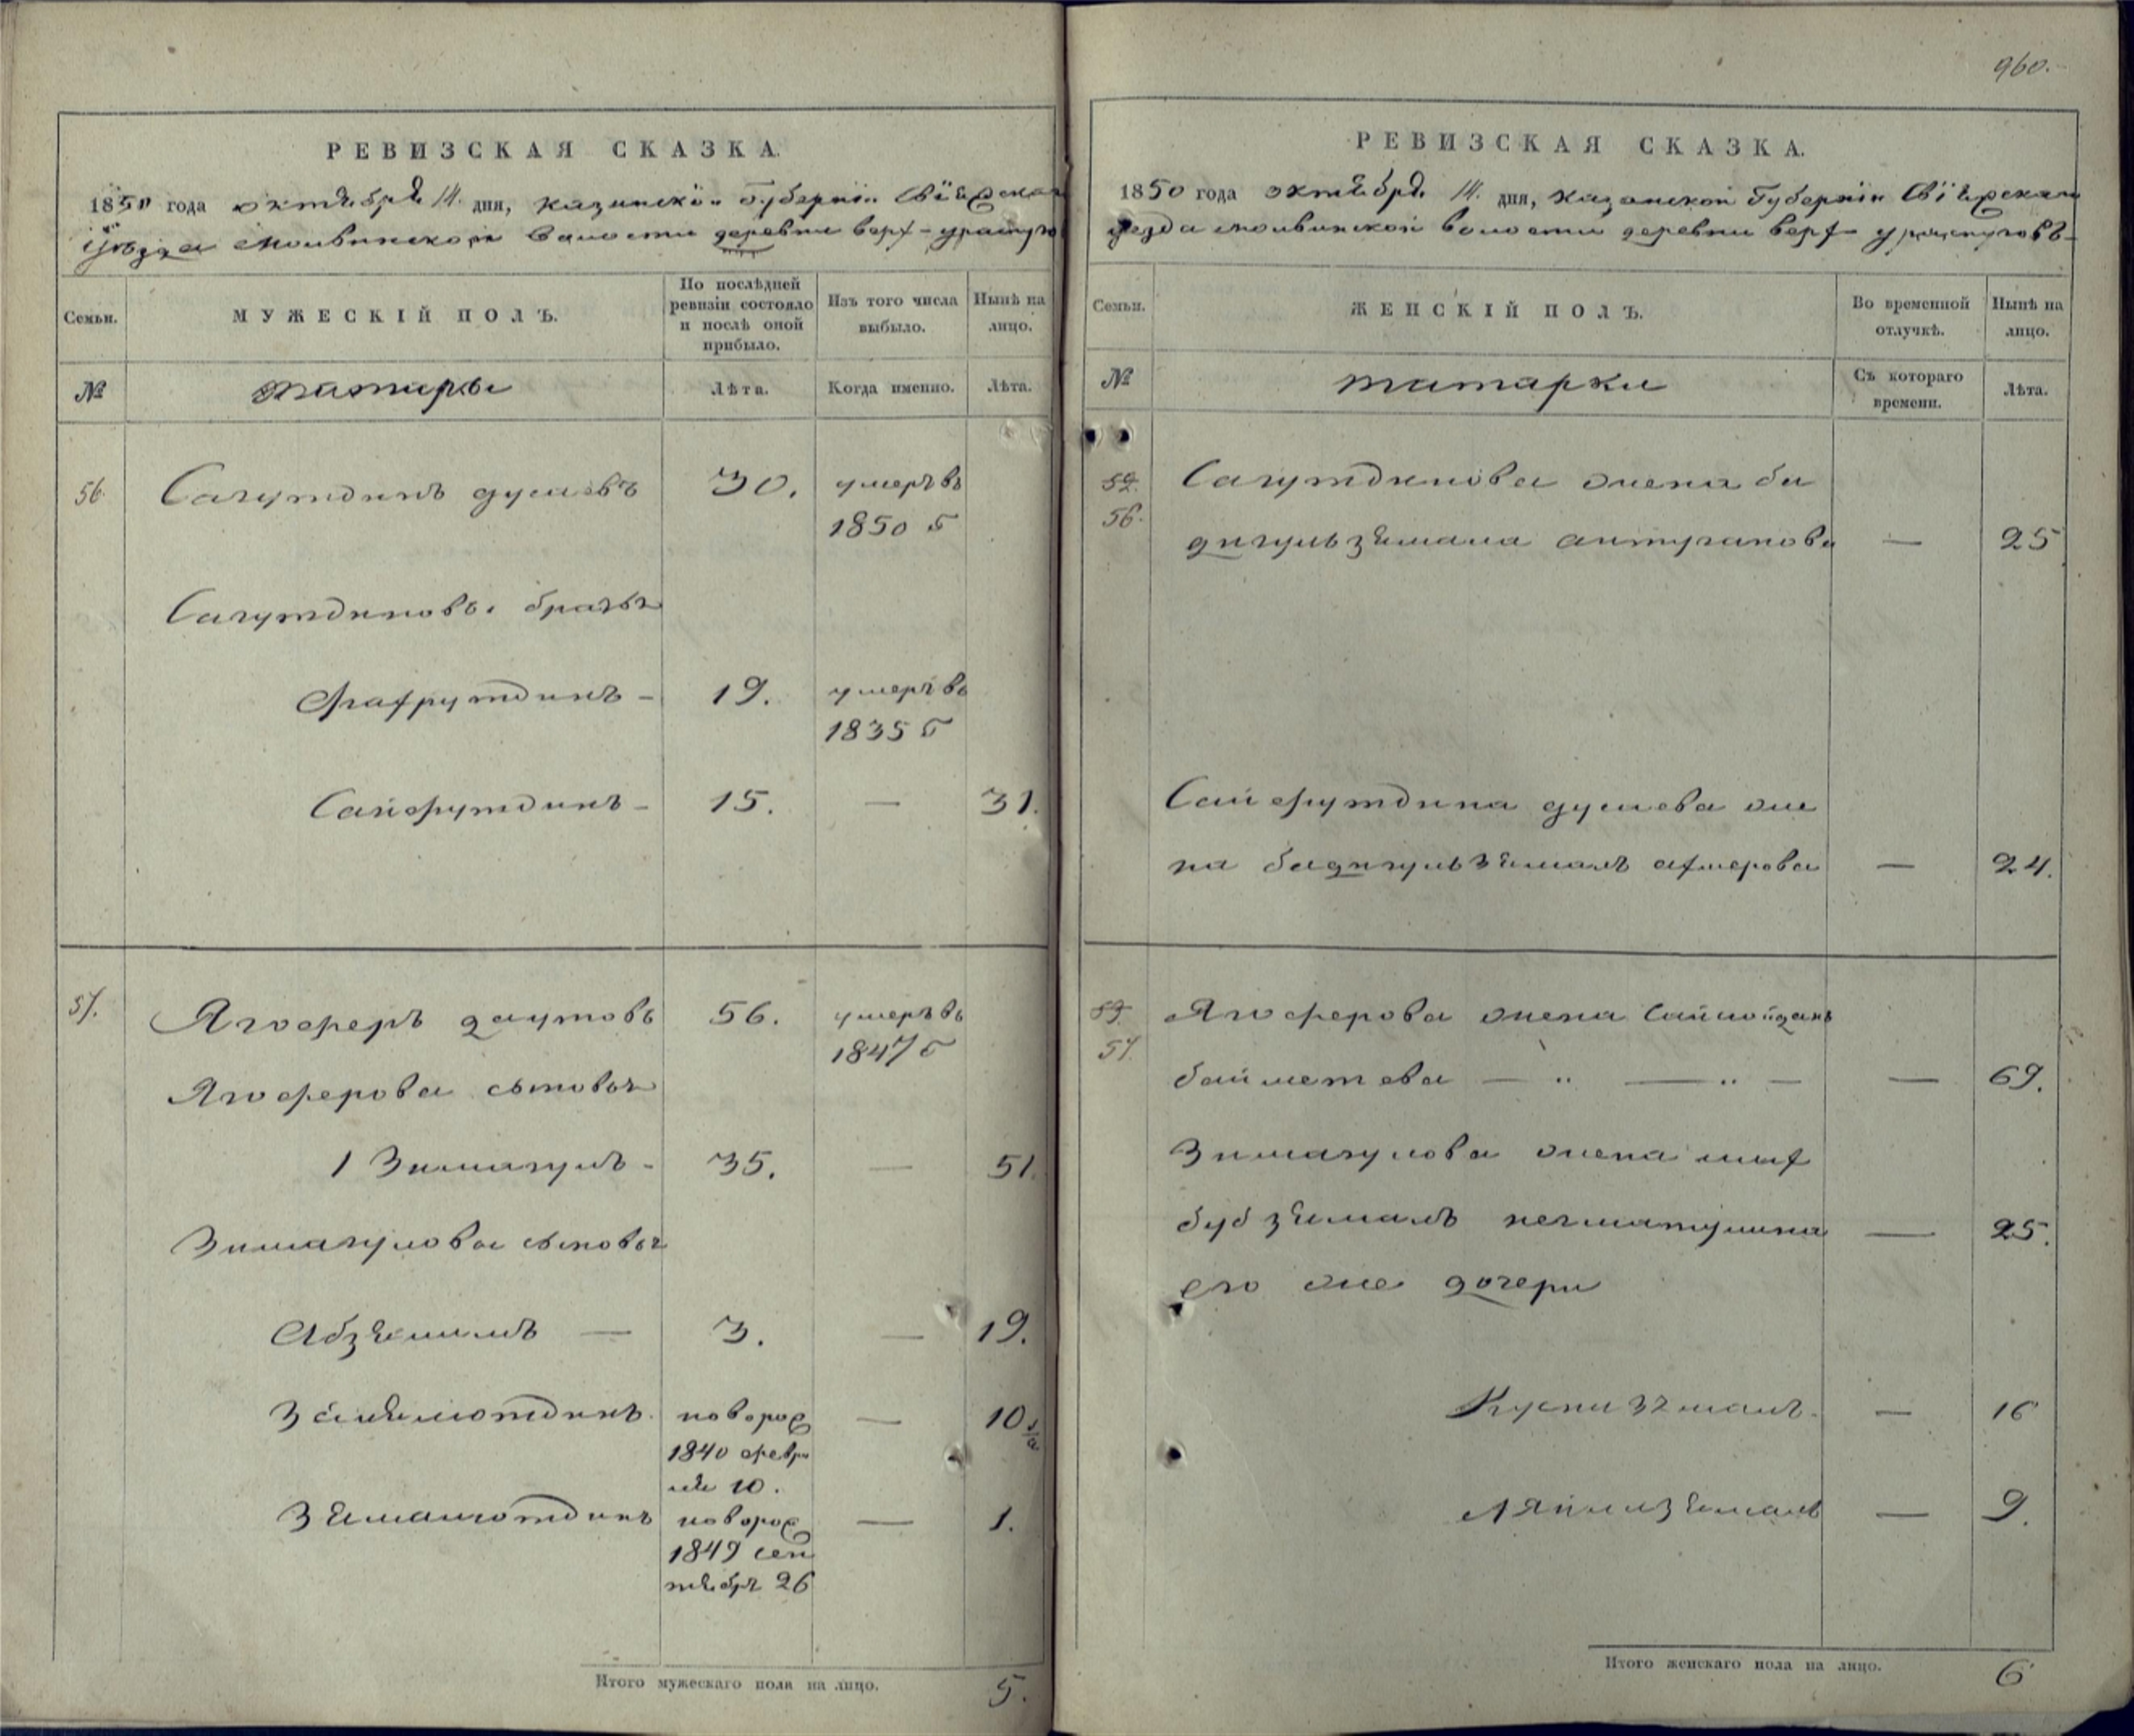 960.
РЕВИЗСКАЯ СКАЗКА.
1850 года октября 14. дня, казанской Губернїи Свїяжскаго
уѣзда молвинской волости деревни верх-ураспуго
Семьи.
МУЖЕСКІЙ ПОЛЪ.
По послѣдней ревизіи состояло и послѣ оной прибыло.
Изъ того числа выбыло.
Нынѣ на лицо.
№
татары
Лѣта.
Когда именно.
Лѣта.
56. Сагутдинъ дусаевъ 30. умеръ въ
1850 г
Сагутдиновы братья
Фахрутдинъ - 19. умеръ въ
1835 г
Сайфутдинъ - 15. — 31.
57. Ягоферъ даутовъ 56. умеръ въ
1847 г
Ягоферова сыновья
1 Зимагулъ - 35. — 51.
Зимагулова сыновья
Абзялилъ — 3. — 19.
новорож — 10 1/2
1840 февра
ля 10.
Зямалютдинъ новорож — 1.
1849 сен
тября 26
Итого мужескаго пола на лицо. 5.
РЕВИЗСКАЯ СКАЗКА.
1850 года октября 14. дня, казанской Губернїи Свїяжскаго
уезда молвинской волости деревни верх ураспуговъ
Семьи.
ЖЕНСКІЙ ПОЛЪ.
Во временной отлучкѣ.
Нынѣ на лицо.
№
татарки
Съ котораго времени.
Лѣта.
Сагутдинова жена ба
56. дигульзямала антуганова — 25
Сайфутдина дусаева же
на бадигульзямалъ ахмерова — 24.
Ягоферова жена
57. байметева — — — 69.
Зимагулова жена мах
бубзямалъ негматулина — 25.
его же дочери
— 16
Ляйлизямалъ — 9.
Итого женскаго пола на лицо. 6